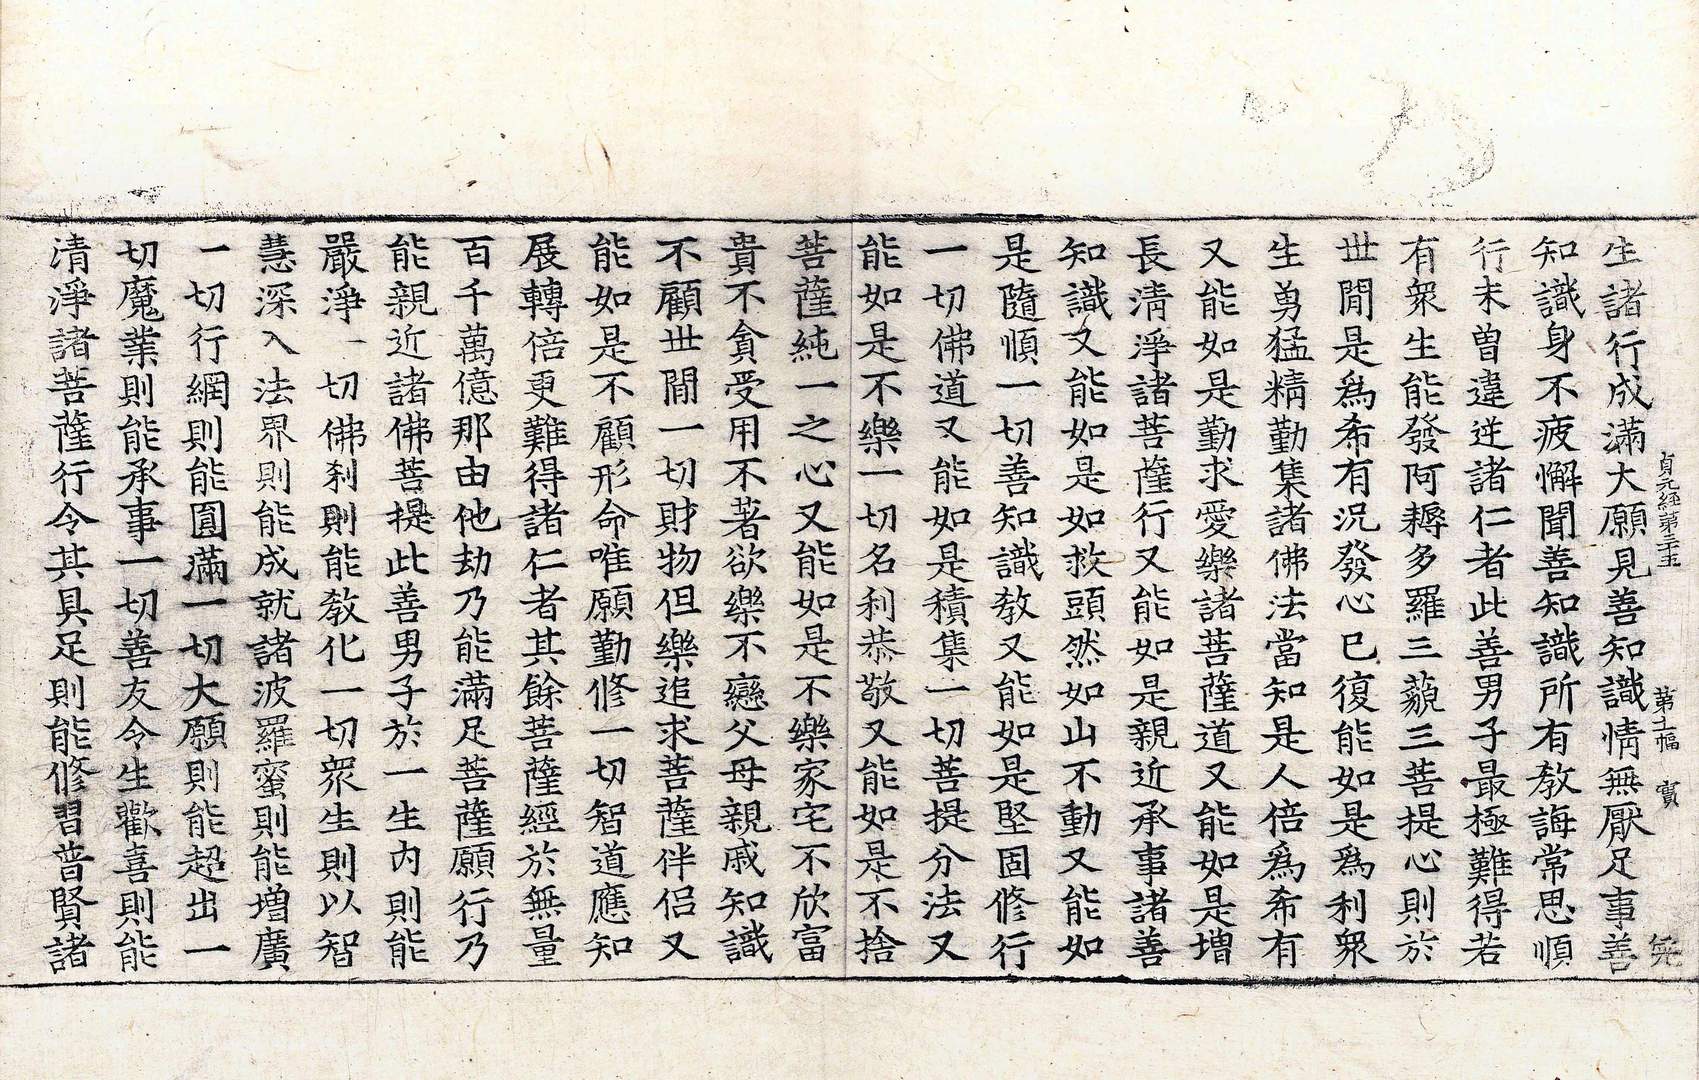 貞元經第三十五 第十幅 賓 完
生諸行成滿大願見善知識情無厭足事善
知識身不疲懈聞善知識所有教誨常思順
行未曾違逆諸仁者此善男子最極難得若
有衆生能發阿耨多羅三藐三菩提心則於
世間是爲希有況發心已復能如是爲利衆
生勇猛精勤集諸佛法當知是人倍爲希有
又能如是勤求愛樂諸菩薩道又能如是增
長清淨諸菩薩行又能如是親近承事諸善
知識又能如是如救頭然如山不動又能如
是隨順一切善知識教又能如是堅固修行
一切佛道又能如是積集一切菩提分法又
能如是不樂一切名利恭敬又能如是不捨
菩薩純一之心又能如是不樂家宅不欣富
貴不貪受用不著欲樂不戀父母親戚知識
不顧世間一切財物但樂追求菩薩伴侶又
能如是不顧形命唯願勤修一切智道應知
展轉倍更難得諸仁者其餘菩薩經於無量
百千萬億那由他劫乃能滿足菩薩願行乃
能親近諸佛菩提此善男子於一生內則能
嚴淨一切佛刹則能教化一切衆生則以智
慧深入法界則能成就諸波羅蜜則能增廣
一切行網則能圓滿一切大願則能超出一
切魔業則能承事一切善友令生歡喜則能
清淨諸菩薩行令其具足則能修習普賢諸